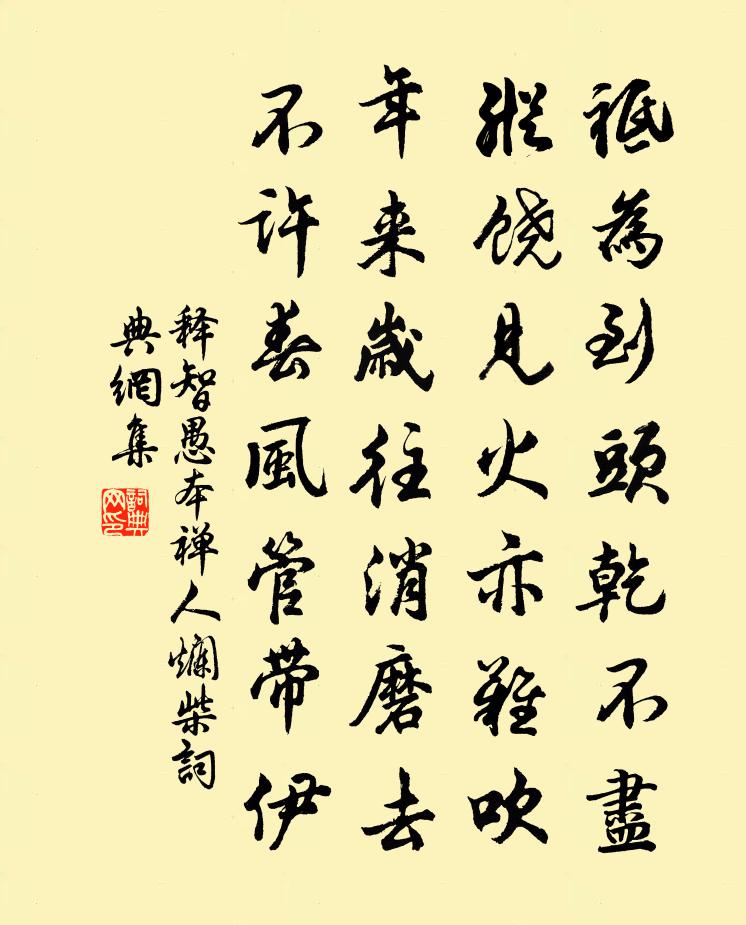 祗為到頭乾不盡
縱饶見火亦難吹
年来歲往消磨去
不許春風管帶伊
释智愚本禅人爛柴詞
典網集
詞典
网印